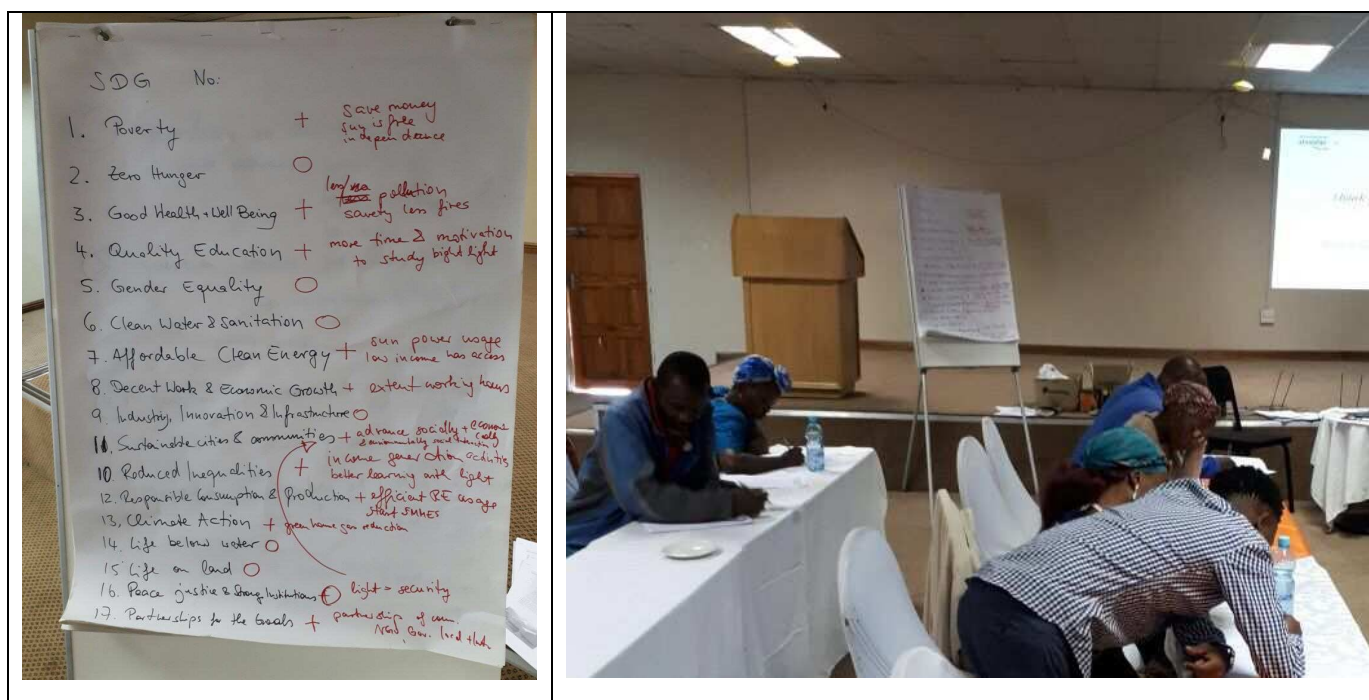 SDG No:
1. Poverty + save money
sun is free
independance
2. Zero Hunger O
3. Good Health + Well Being + less pollution
savety less fires
4. Quality Education + more time & motivation
to study bight light
5. Gender Equality O
6. Clean Water & Sanitation O
7. Affordable Clean Energy + sun power usage
low income has access
8. Decent Work & Economic Growth + extent working hours
9. Industry, Innovation & Infrastructure O
11. Sustainable cities & communities + advance socially + economically
& environmentally
10 Reduced Inequalities + income generation activities
better learning with light
12. Responsible Consumption & Production + efficient RE usage
start SMMES
13. Climate Action + green home gas reduction
14. Life below water O
15 Life on land O
16. Peace justice & Strong Institutions + light = security
17. Partnerships for the Goals + partnership of
NGO, Gov.